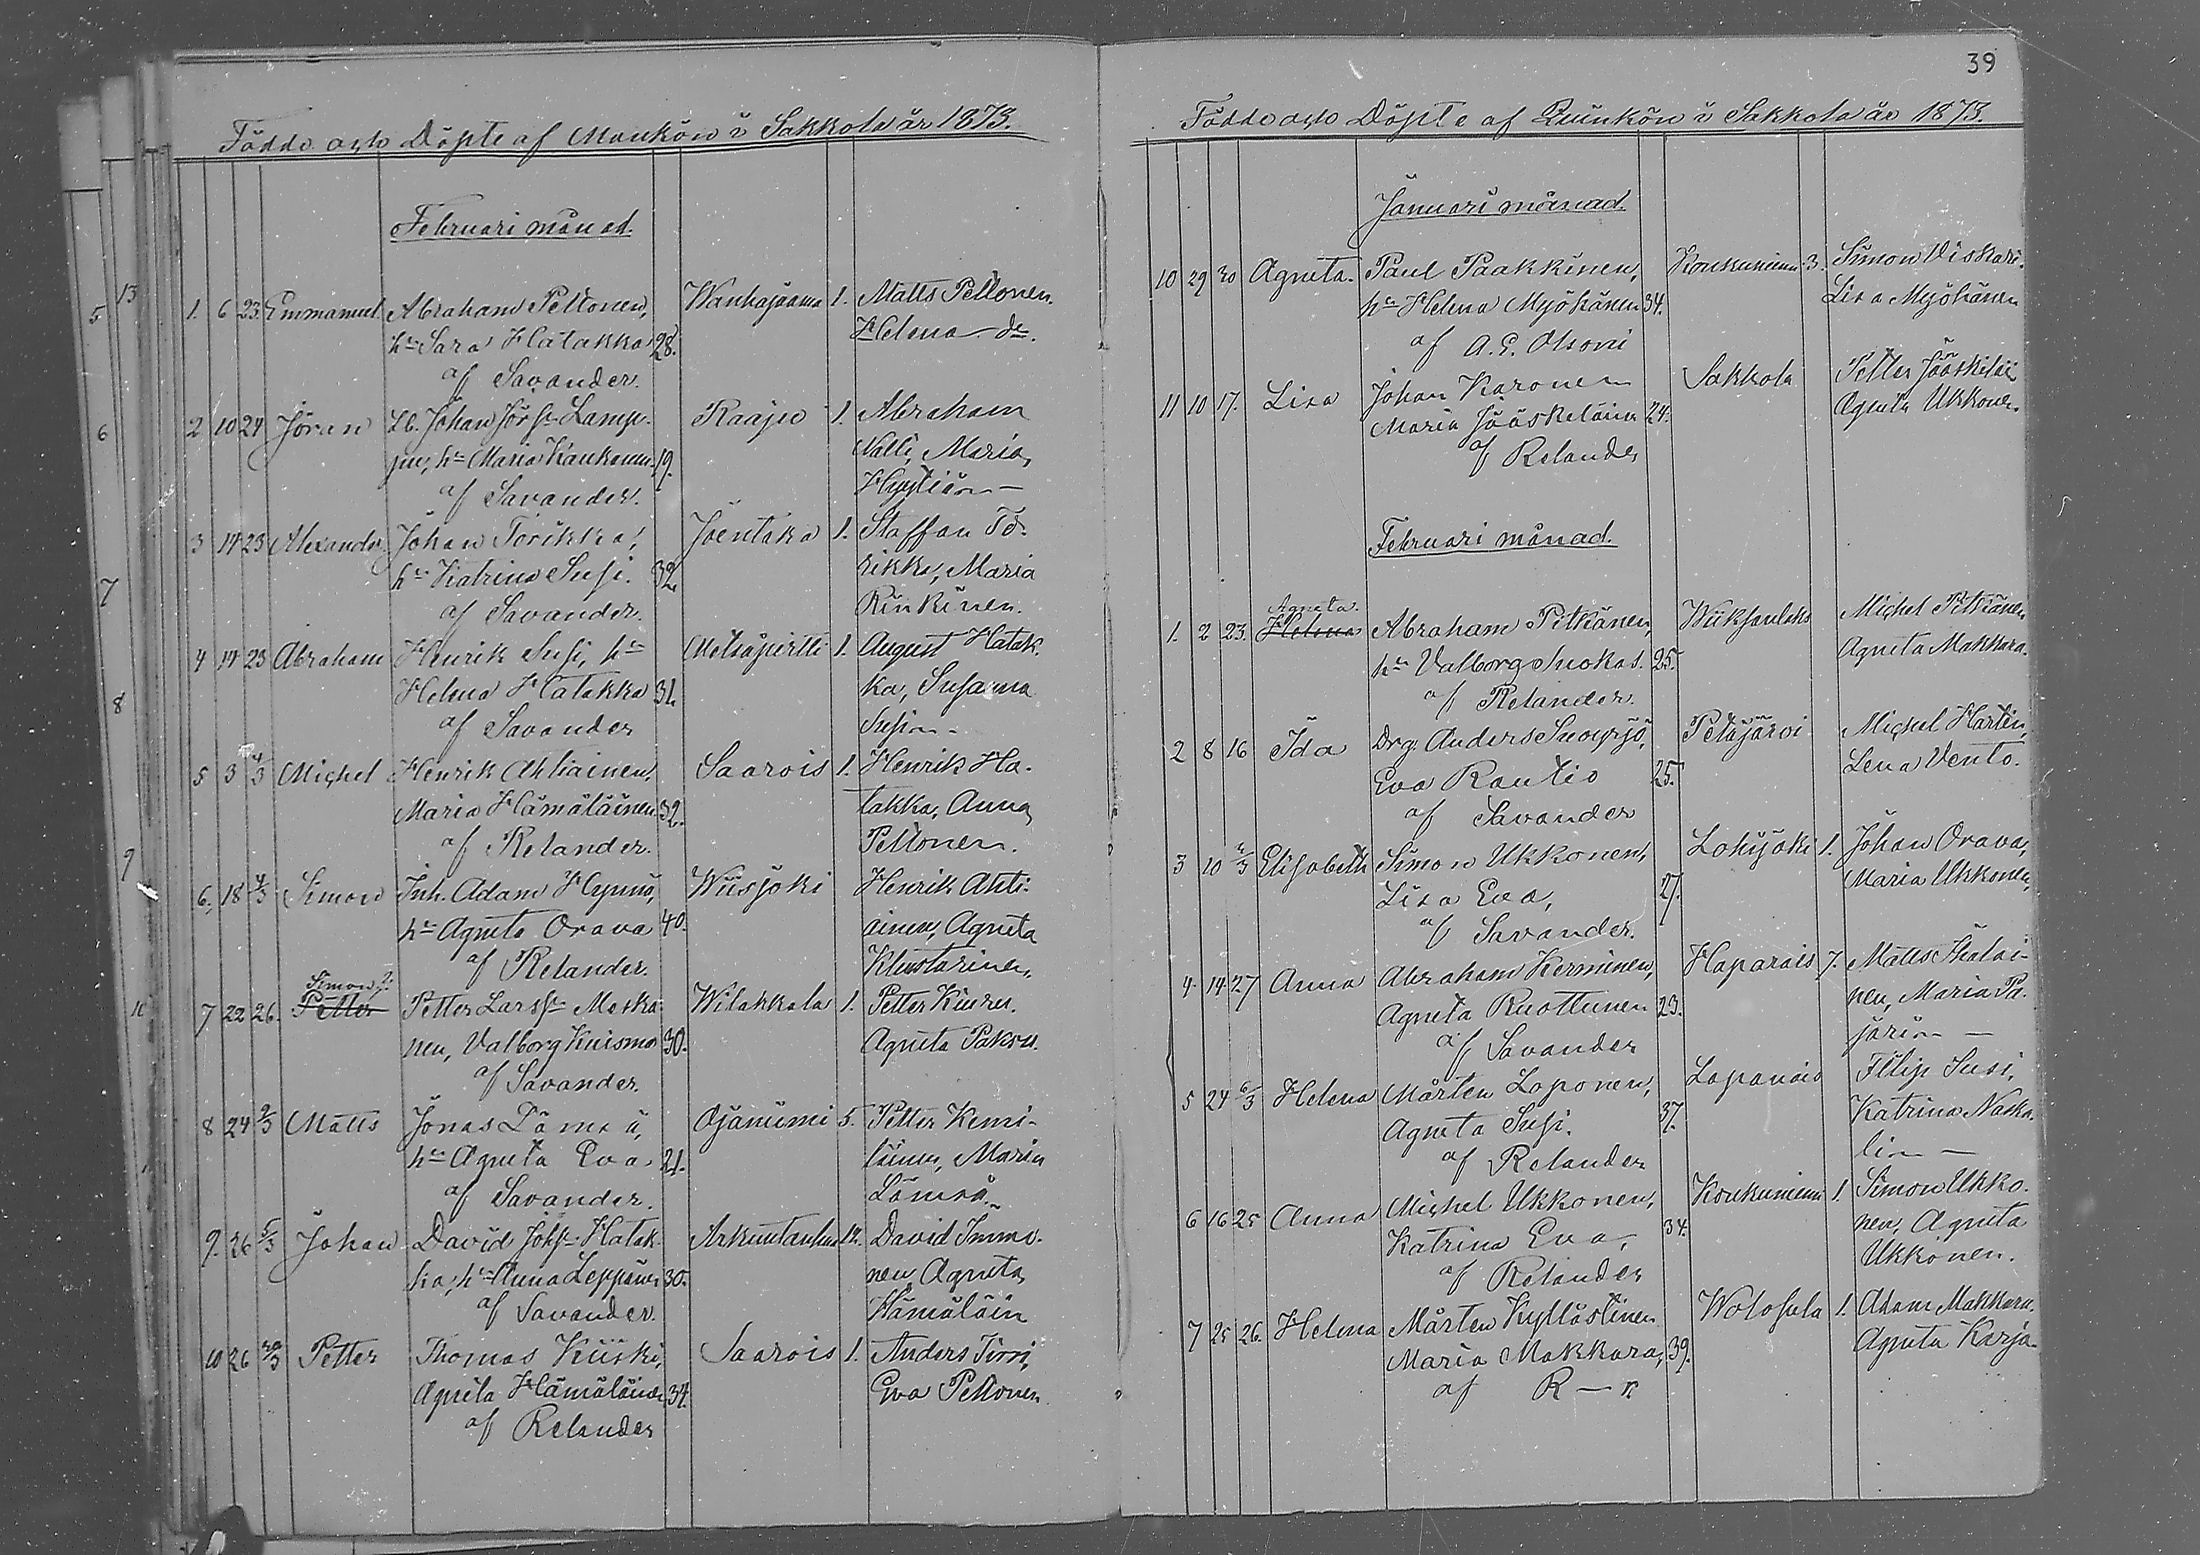 Födde och Döpte af Mankön i Sakkola år 1873.
Februari månad.
1. 6 23 Emmanuel Abraham Peltonen, Wanhajaama 1. Matts Peltonen.
hn Sara Hatakka 28. Helena do.
af Savander.
2 10 24 Jöran Lb. Johan Jörss Lamp- Raaju 1. Abraham
pu, hn Maria Kaukonen 19. Nalli, Maria
af Savander. Hyytiän
3 14 23 Alexander Johan Törikka, Joentaka 1. Staffan Tö-
hn Katrina Susi. 32 rikka, Maria
af Savander. Rinkinen.
4 14 23 Abraham Henrik Susi, hn Metsäpirtti 1. August Hatak-
Helena Hatakka 31. ka, Susanna
af Savander Susi
5 3 4/3 Michel Henrik Ahtiainen, Saarois 1. Henrik Ha-
Maria Hämäläinen 32. takka, Anna
af Relander. Peltonen.
6. 18 4/3 Simon Inh. Adam Hynnä, Wiisjoki Henrik Ahti-
hn Agneta Orava 40. ainen, Agneta
af Relander.
Simon
7 22 26. Petter Petter Larss Moska- Wilakkala 1. Petter Kiuru.
nen, Valborg Kuisma 30. Agneta Paksu.
af Savander.
8 24 2/3 Matts Jonas Lämsä, Ojaniemi 5. Petter Kemi-
hn Agneta Eva. 21. läinen, Maria
af Savander. Lämsä
9. 26 5/3 Johan David Johss Hatak- Arkuntanhua 12. David Immo-
ka, hn Anna Leppänen 30. nen, Agneta
af Savander. Hämäläin
10 26 Petter Thomas Kiiski, Saarois 1. Anders Tirri,
Agneta Hämäläinen 34. Eva Peltonen
af Relander
39
Födde och Döpte af Quinkön i Sakkola år 1873.
Januari månad.
10 29 30 Agneta. Paul Paakkinen, Koukunniemi 3. Simon Viskari.
hn Helena Myöhänen 34. Lisa Myöhänen
af A. G. Olsoni
11 10 17. Lisa Johan Karonen Sakkola Petter Jääskeläi
Maria Jääskeläinen 24. Agneta Ukkonen
af Relander
Februari månad.
Agneta.
1. 2 23. Helena Abraham Pitkänen, Wiiksanlaks Michel Pitkänen
hn Valborg Suokas. 25. Agneta Makkara.
af Relander.
2 8 16 Ida Drg. Anders Suoyrjö, Petäjärvi Michel Hartin,
Eva Rautio 25. Lena Vento.
af Savander
3 10 2/3 Elisabeth Simon Ukkonen, Lohijoki 1. Johan Orava,
Lisa Eva, 27. Maria Ukkonen,
af Savander.
4. 14 27 Anna Abraham Kerminen, Haparais 7. Matts
Agneta Ruottinen 23. nen, Maria Pa-
af Savander järin
5 24 6/3 Helena Mårten Loponen, Lapanais Filip Susi,
Agneta Susi. 37. Katrina Naska-
af Relander lin
6 16 25 Anna Michel Ukkonen, Koukunniemi 1. Simon Ukko-
Katrina Eva, 34. nen, Agneta
af Relander Ukkonen.
7 25 26. Helena Mårten Kylläslinen Wolosula 1. Adam Makkara.
Maria Makkara, 39. Agneta Karja
af R—r.
5 13
6
7
8
9